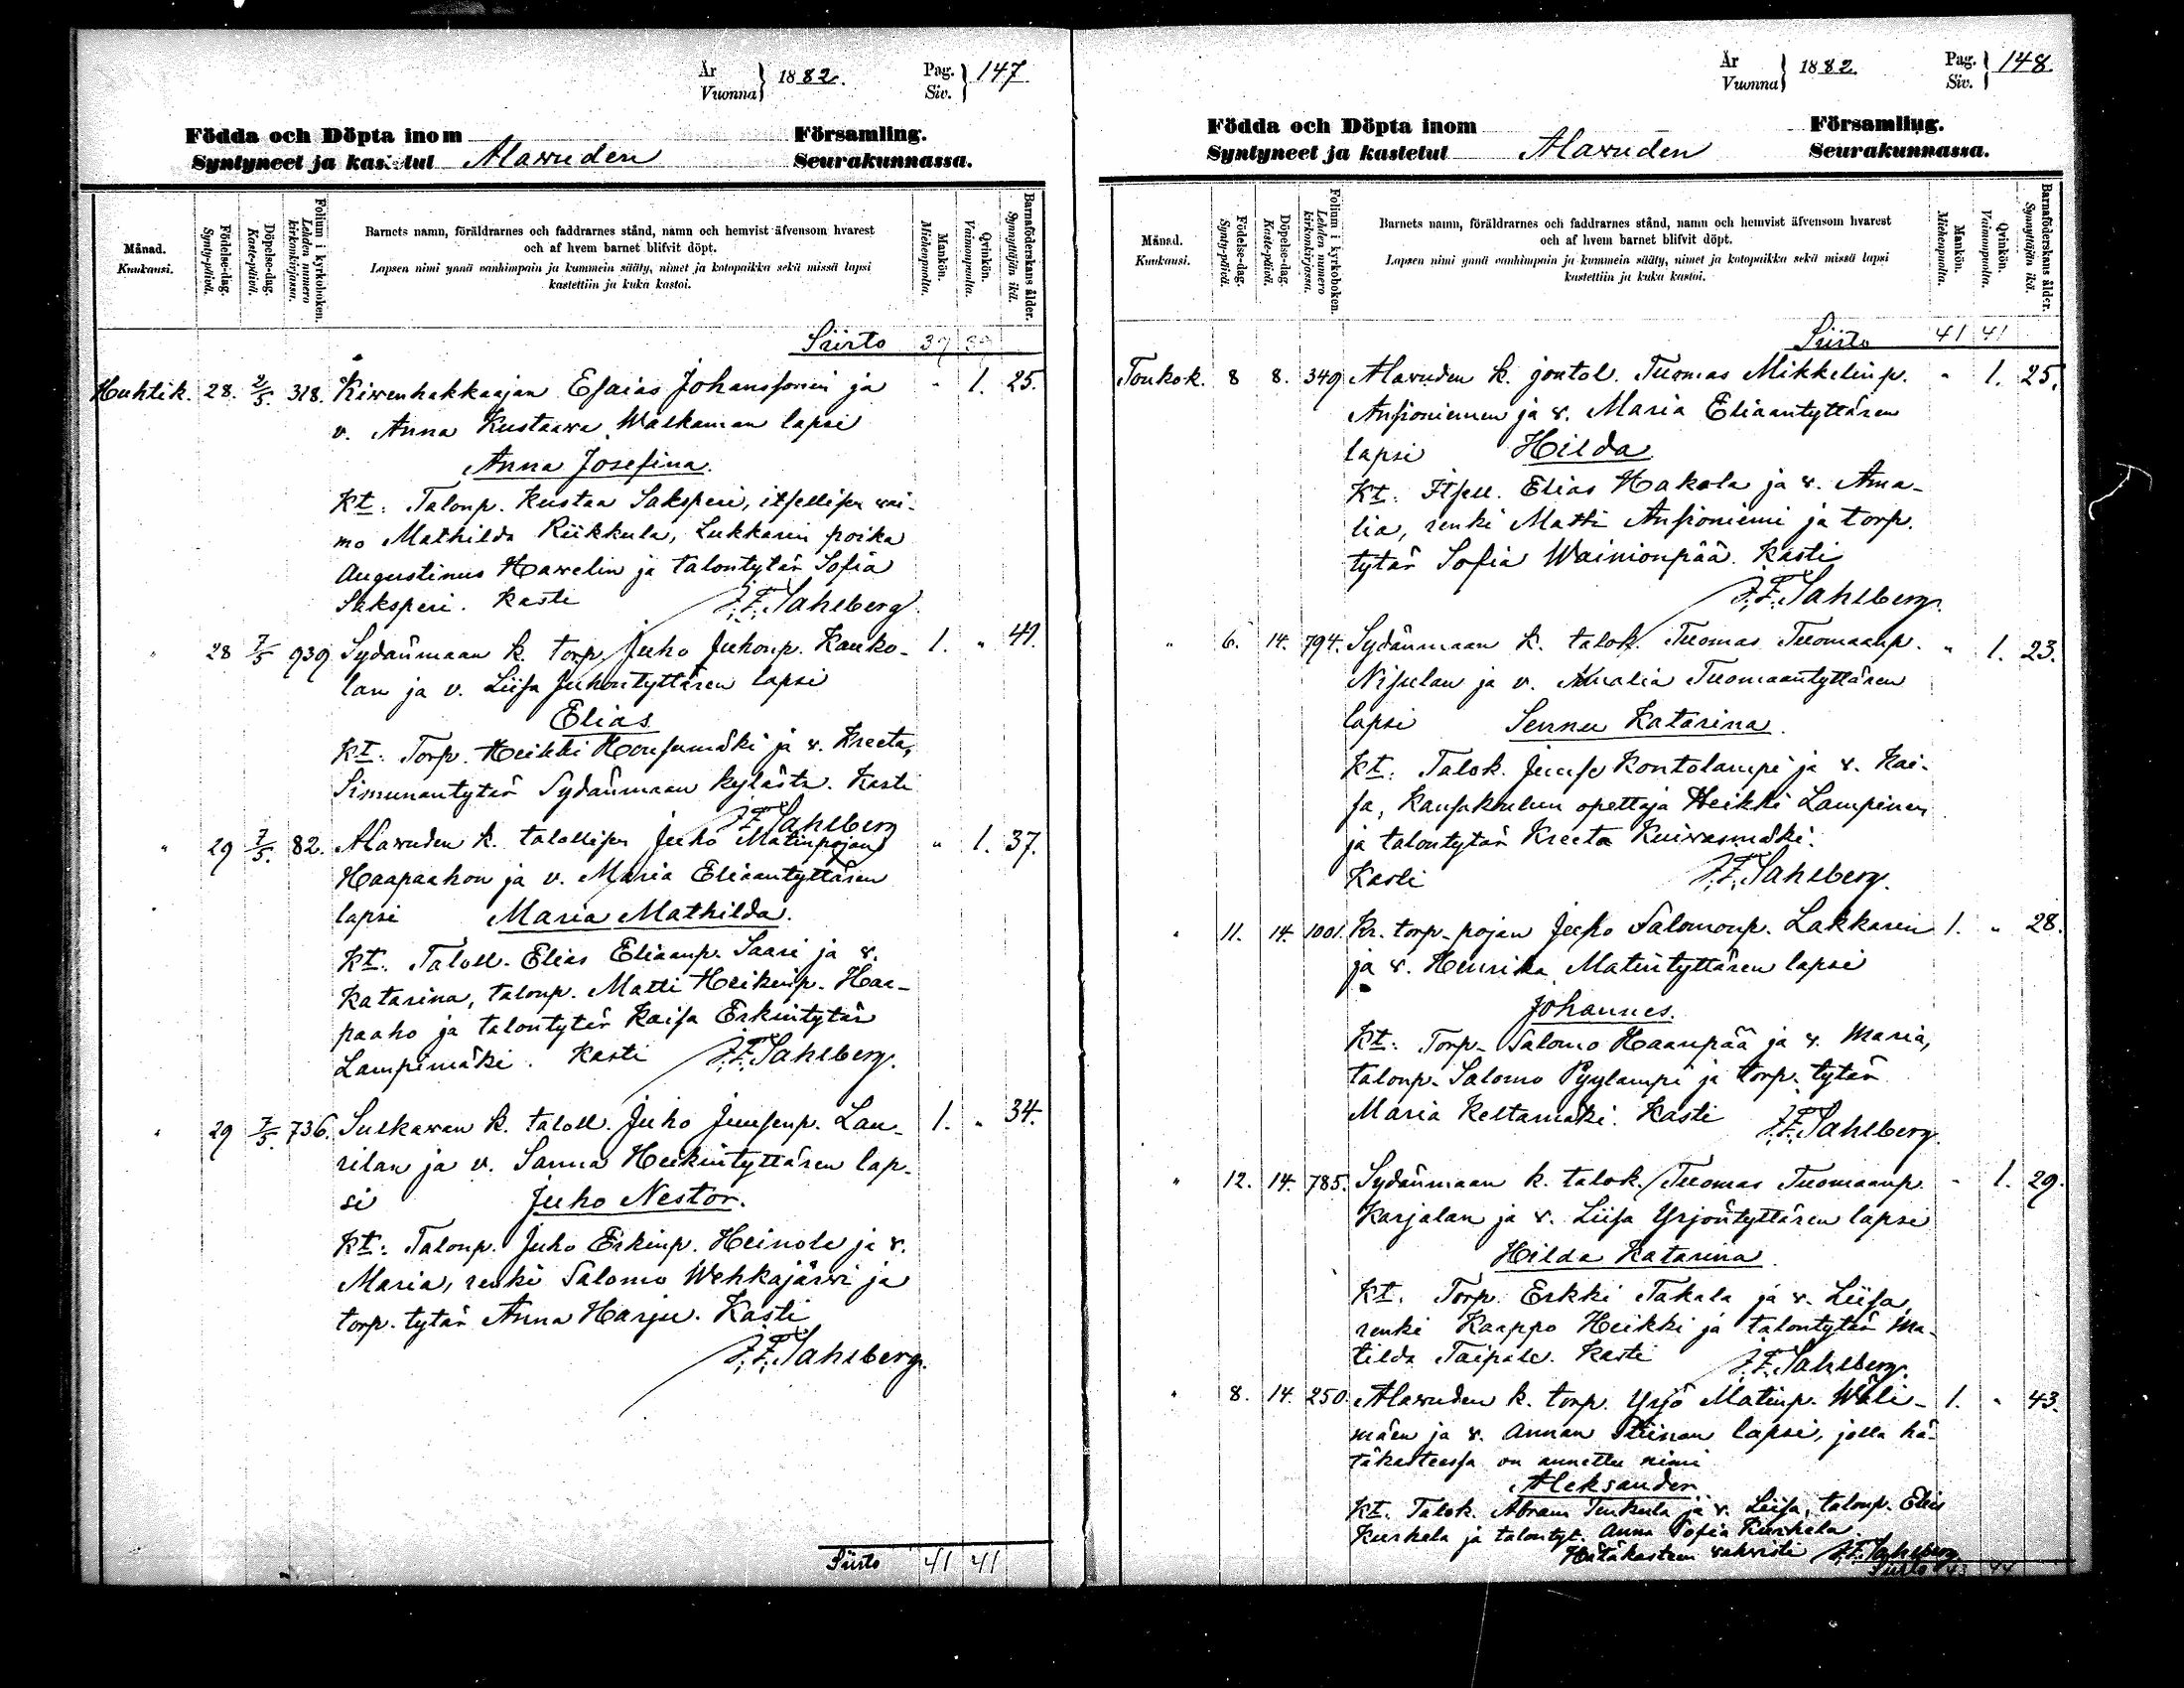 År Vuonna } 1882. Pag. Siv. } 147
Födda och Döpta inom Församling.
Syntyneet ja kastetut Alawuden Seurakunnassa.
Månad. Kuukausi.
Födelse-dag. Synty-päivä.
Döpelse-dag. Kaste-päivä.
Folium i kyrkoboken. Lehden numero kirkonkirjassa.
Barnets namn, föräldrarnes och faddrarnes stånd, namn och hemvist äfvensom hvarest
och af hvem barnet blifvit döpt.
Lapsen nimi ynnä vanhimpain ja kummein sääty, nimet ja kotopaikka sekä missä lapsi
kastettiin ja kuka kastoi.
Mankön. Miehenpuolta.
Qvinkön. Vaimonpuolta.
Barnaföderskans ålder. Synnyttäjän ikä.
Siirto 37 37
Huhtik. 28. 2/5. 318. Kiwenhakkaajan Esaias Johanssonin ja " 1. 25.
v. Anna Kustaawa Walkaman lapsi
Anna Josefina.
Kt: Talonp. Kustaa Saksperi, itsellisen wai-
mo Mathilda Riikkula, Lukkarin poika
Augustinus Hawelin ja talontytär Sofia
Saksperi. Kasti J.F. Sahlberg.
" 28 7/5 939 Sydänmaan k. torp. Juho Juhonp. Kauko- 1. " 41.
lan ja v. Liisa Juhontyttären lapsi
Elias
Kt: Torp. Heikki Honsumäki ja v. Kreeta,
Simunantytär Sydänmaan kylästä. Kasti
J.F. Sahlberg
" 29 7/5. 82. Alawuden k. talollisen Juho Matinpojan " 1. 37.
Haapaahon ja v. Maria Eliaantyttären
lapsi Maria Mathilda.
Kt: Taloll. Elias Eliaanp. Saari ja v.
Katarina, talonp. Matti Heikinp. Haa-
paaho ja talontytär Kaisa Erkintytär
Lampimäki. Kasti J.F. Sahlberg.
" 29 7/5. 736. Sulkawan k. taloll. Juho Juusenp. Lau- 1. " 34.
rilan ja v. Sanna Heikintyttären lap-
si Juho Nestor.
Kt: Talonp. Juho Erkinp. Heinola ja v.
Maria, renki Salomo Wehkajärwi ja
torp. tytär Anna Harju. Kasti
J.F. Sahlberg.
Siirto 41 41
År Vuonna } 1882. Pag. Siv. } 148.
Födda och Döpta inom Församling.
Syntyneet ja kastetut Alawuden Seurakunnassa.
Månad. Kuukausi.
Födelse-dag. Synty-päivä.
Döpelse-dag. Kaste-päivä.
Folium i kyrkoboken. Lehden numero kirkonkirjassa.
Barnets namn, föräldrarnes och faddrarnes stånd, namn och hemvist äfvensom hvarest
och af hvem barnet blifvit döpt.
Lapsen nimi ynnä vanhimpain ja kummein sääty, nimet ja kotopaikka sekä missä lapsi
kastettiin ja kuka kastoi.
Mankön. Miehenpuolta.
Qvinkön. Vaimonpuolta.
Barnaföderskans ålder. Synnyttäjän ikä.
Siirto 41 41
Toukok. 8 8. 349 Alawuden k. joutol. Tuomas Mikkelinp. " 1. 25.
Ansioniemen ja v. Maria Eliaantyttären
lapsi Hilda
Kt: Itsell. Elias Hakala ja v. Ama-
lia, renki Matti Ansioniemi ja torp.
tytär Sofia Wainionpää. Kasti
J.F. Sahlberg.
" 6. 14. 794. Sydänmaan k. talok. Tuomas Tuomaanp. " 1. 23.
Nisulan ja v. Amalia Tuomaantyttären
lapsi Sennu Katarina.
Kt: Talok. Juuse Kontolampi ja v. Kai-
sa, kansakoulun opettaja Heikki Lampinen
ja talontytär Kreeta Kuiwasmäki.
Kasti J.F. Sahlberg.
" 11. 14. 1001. Kr. torp. pojan Juho Salomonp. Lakkarin 1. " 28.
ja v. Henrika Matintyttären lapsi
Johannes.
Kt: Torp. Salomo Haanpää ja v. Maria,
talonp. Salomo Pyylampi ja torp. tytär
Maria Keltamäki. Kasti J.F. Sahlberg.
" 12. 14. 785. Sydänmaan k. talok. Tuomas Tuomaanp. " 1. 29.
Karjalan ja v. Liisa Yrjöntyttären lapsi
Hilda Katarina
Kt. Torp. Erkki Takala ja v. Liisa,
renki Kaappo Heikki ja talontytär Ma-
tilda Taipale. Kasti J.F. Sahlberg.
" 8. 14. 250. Alawuden k. torp. Yrjö Matinp. Wäli- 1. " 43.
mäen ja v. Annan Stiinan lapsi, jolla hä-
täkasteessa on annettu nimi
Aleksander.
Kt. Talok. Abram ja v. Liisa, talonp. Elias
Kurkela ja talontyt. Anna Sofia Kurkela.
Hätäkasteen wahwisti J.F. Sahlberg
Siirto 43 44